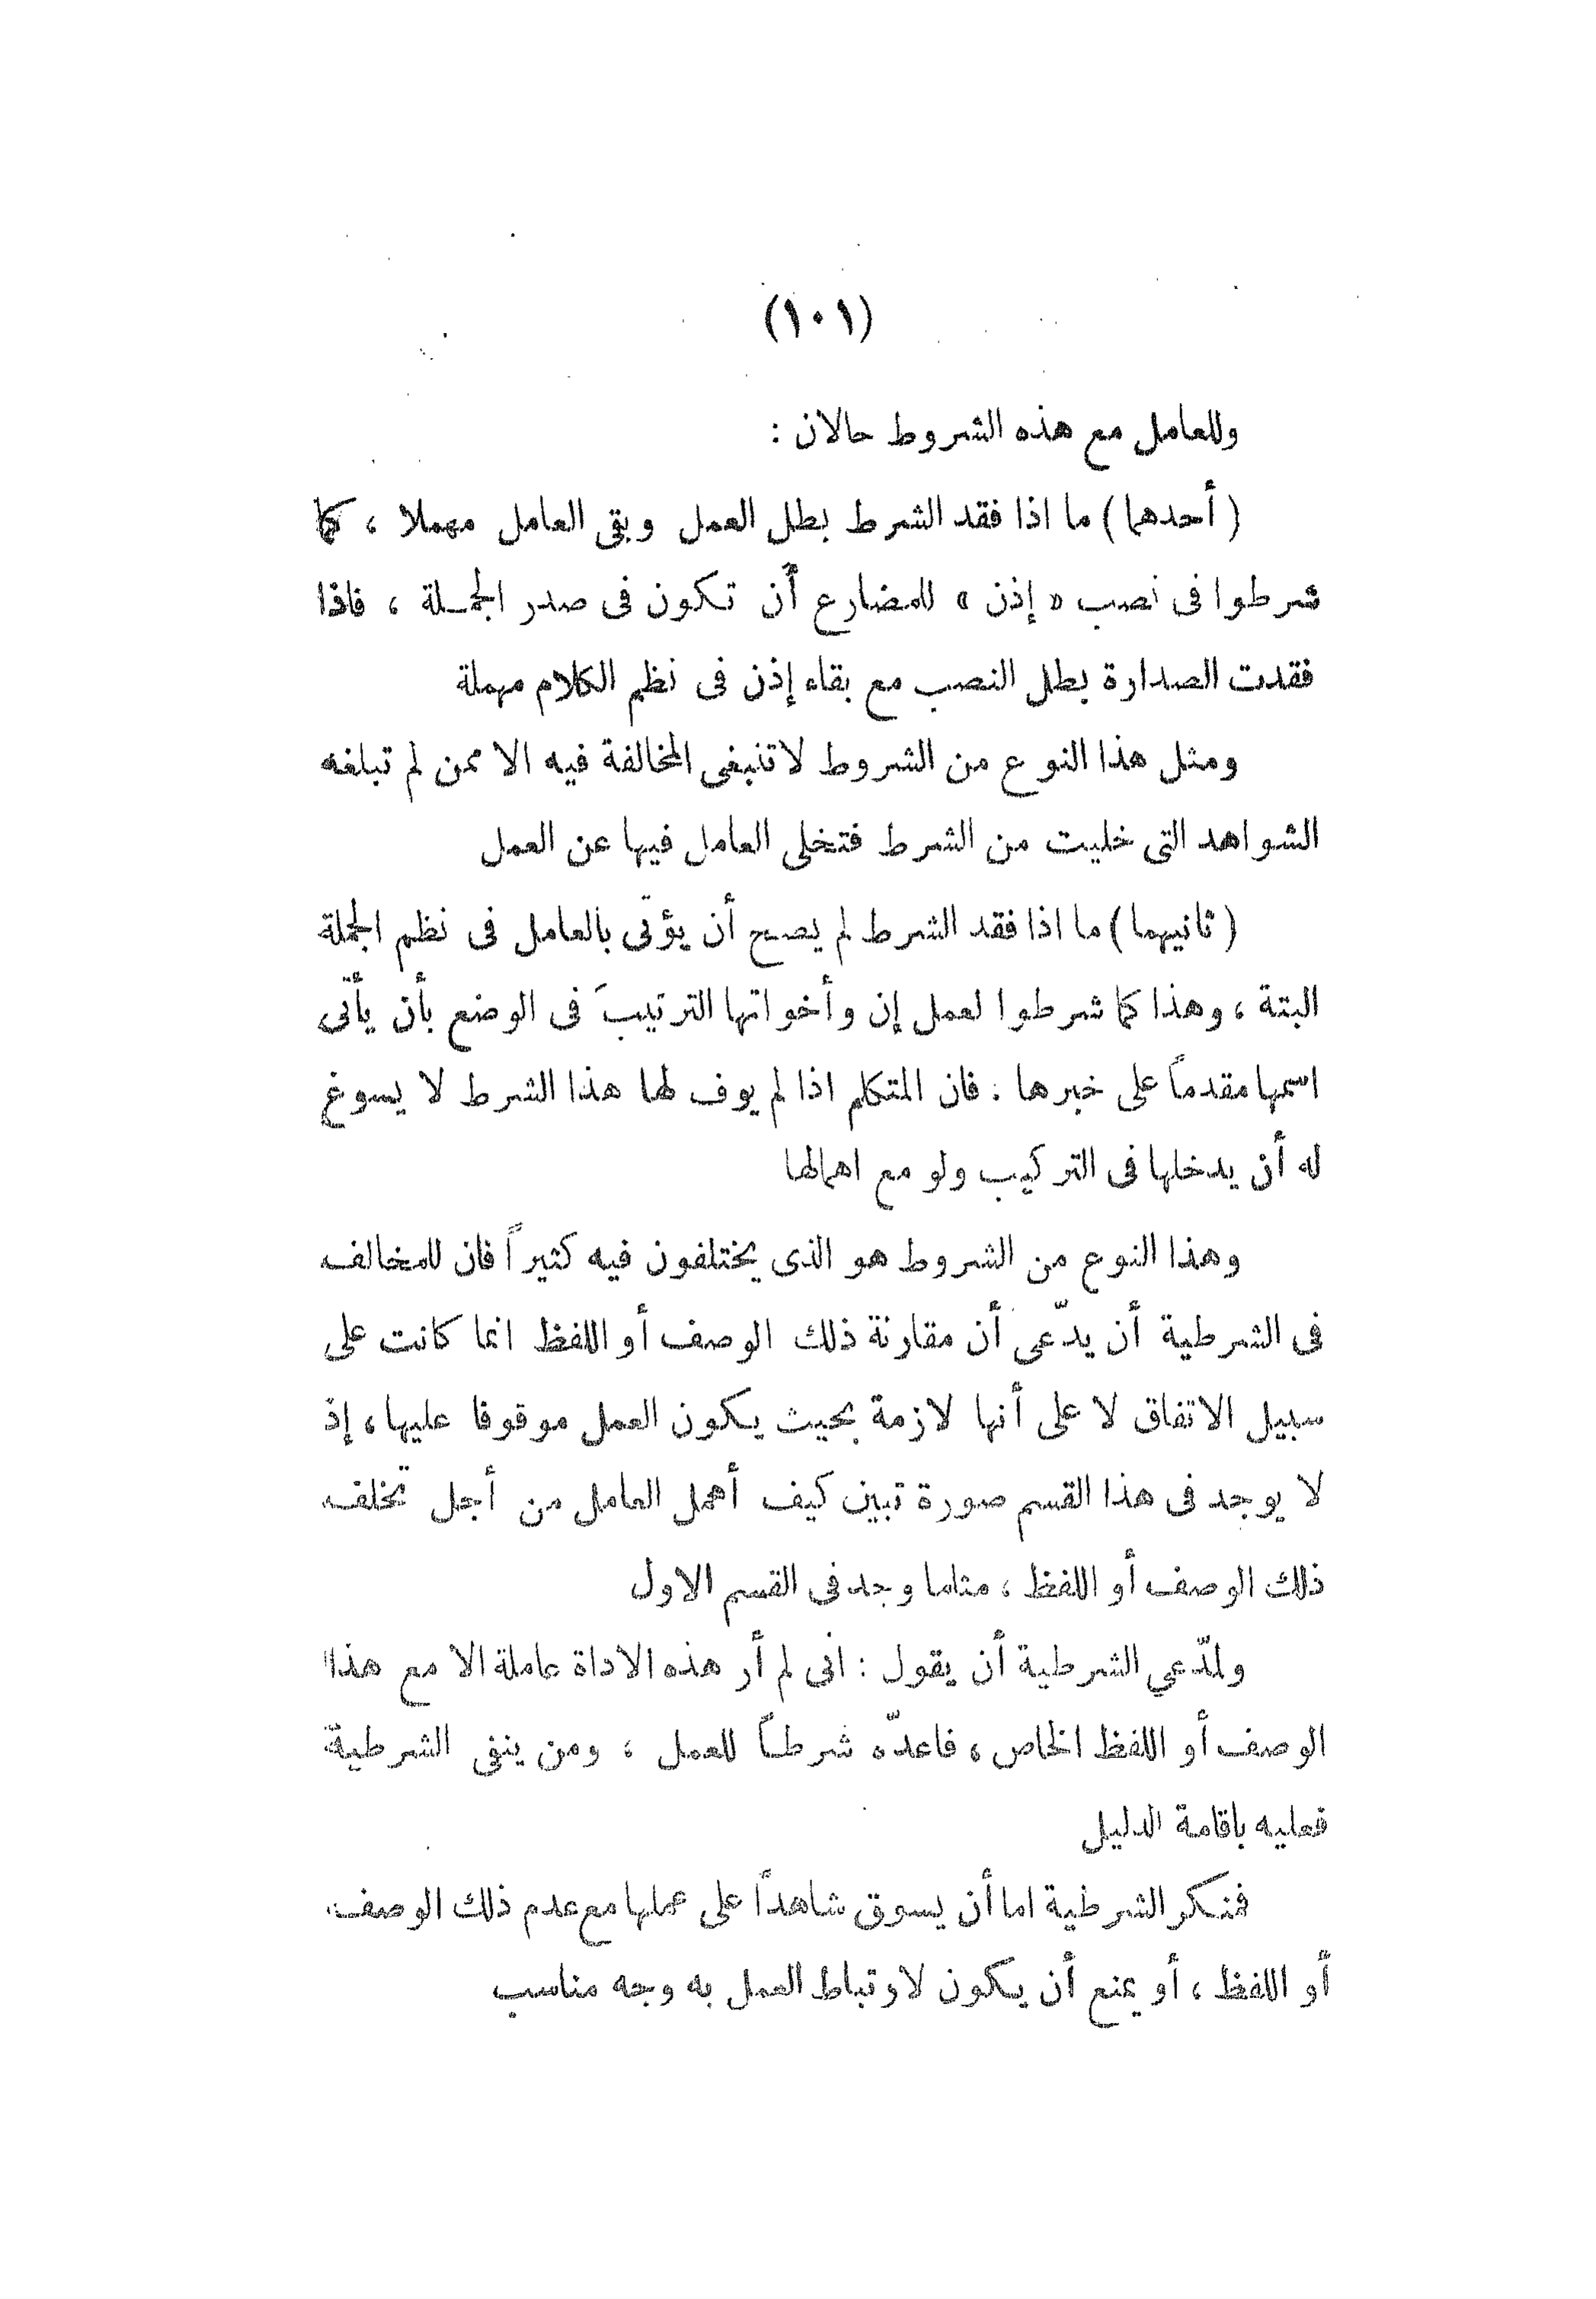 (١٠١)
وللعامل مع هذه الشروط حالان :
( أحدهما ) ما اذا فقد الشرط بطل العمل وبقى العامل مهملا ، كما
شرطوا فى نصب « إذن » للمضارع أن تكون فى صدر الجملة ، فاذا
فقدت الصدارة بطل النصب مع بقاء إذن فى نظم الكلام مهملة
ومثل هذا النوع من الشروط لاتنبغى المخالفة فيه الا ممن لم تبلغه
الشواهد التى خليت من الشرط فتخلى العامل فيها عن العمل
( ثانيهما ) ما اذا فقد الشرط لم يصح أن يؤتى بالعامل فى نظم الجملة
البتة ، وهذا كما شرطوا لعمل إن وأخواتها الترتيبَ فى الوضع بأن يأتى
اسمها مقدماً على خبرها . فان المتكلم اذا لم يوف لها هذا الشرط لا يسوغ
له أن يدخلها فى التركيب ولو مع اهمالها
وهذا النوع من الشروط هو الذى يختلفون فيه كثيراً فان للمخالف
فى الشرطية أن يدّعى أن مقارنة ذلك الوصف أو اللفظ انما كانت على
سبيل الاتفاق لا على أنها لازمة بحيث يكون العمل موقوفا عليها ، إذ
لا يوجد فى هذا القسم صورة تبين كيف أهمل العامل من أجل تخلف
ذلك الوصف أو اللفظ ، مثلما وجد فى القسم الاول
ولمدّعي الشرطية أن يقول : انى لم أر هذه الاداة عاملة الا مع هذا
الوصف أو اللفظ الخاص ، فاعدّه شرطاً للعمل ، ومن ينفى الشرطية
فعليه باقامة الدليل
فمنكر الشرطية اما أن يسوق شاهداً على عملها مع عدم ذلك الوصف
أو اللفظ ، أو يمنع أن يكون لارتباط العمل به وجه مناسب